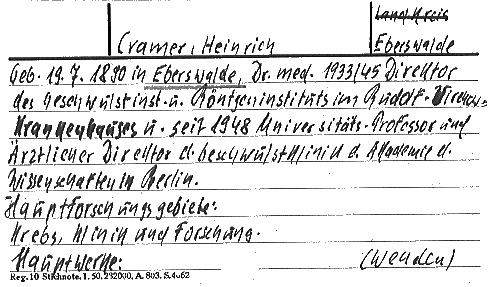 Land Kreis
Cramer, Heinrich Eberswalde
Geb. 19.7. 1890 in Eberswalde, Dr. med. 1933/45 Direktor
des Geschwulstinst. u. Röntgeninstituts im Rudolf-Virchow-
Krankenhauses u. seit 1948 Universitäts-Professor und
Ärztlicher Direktor d. Geschwulstklinik d. Akademie d.
Wissenschaften in Berlin.
Hauptforschungsgebiete:
Krebs, Klinik und Forschung.
Hauptwerke: (wenden)
Reg. 10 Stichnote. I. 50. 232000. A. 803. S. 4062